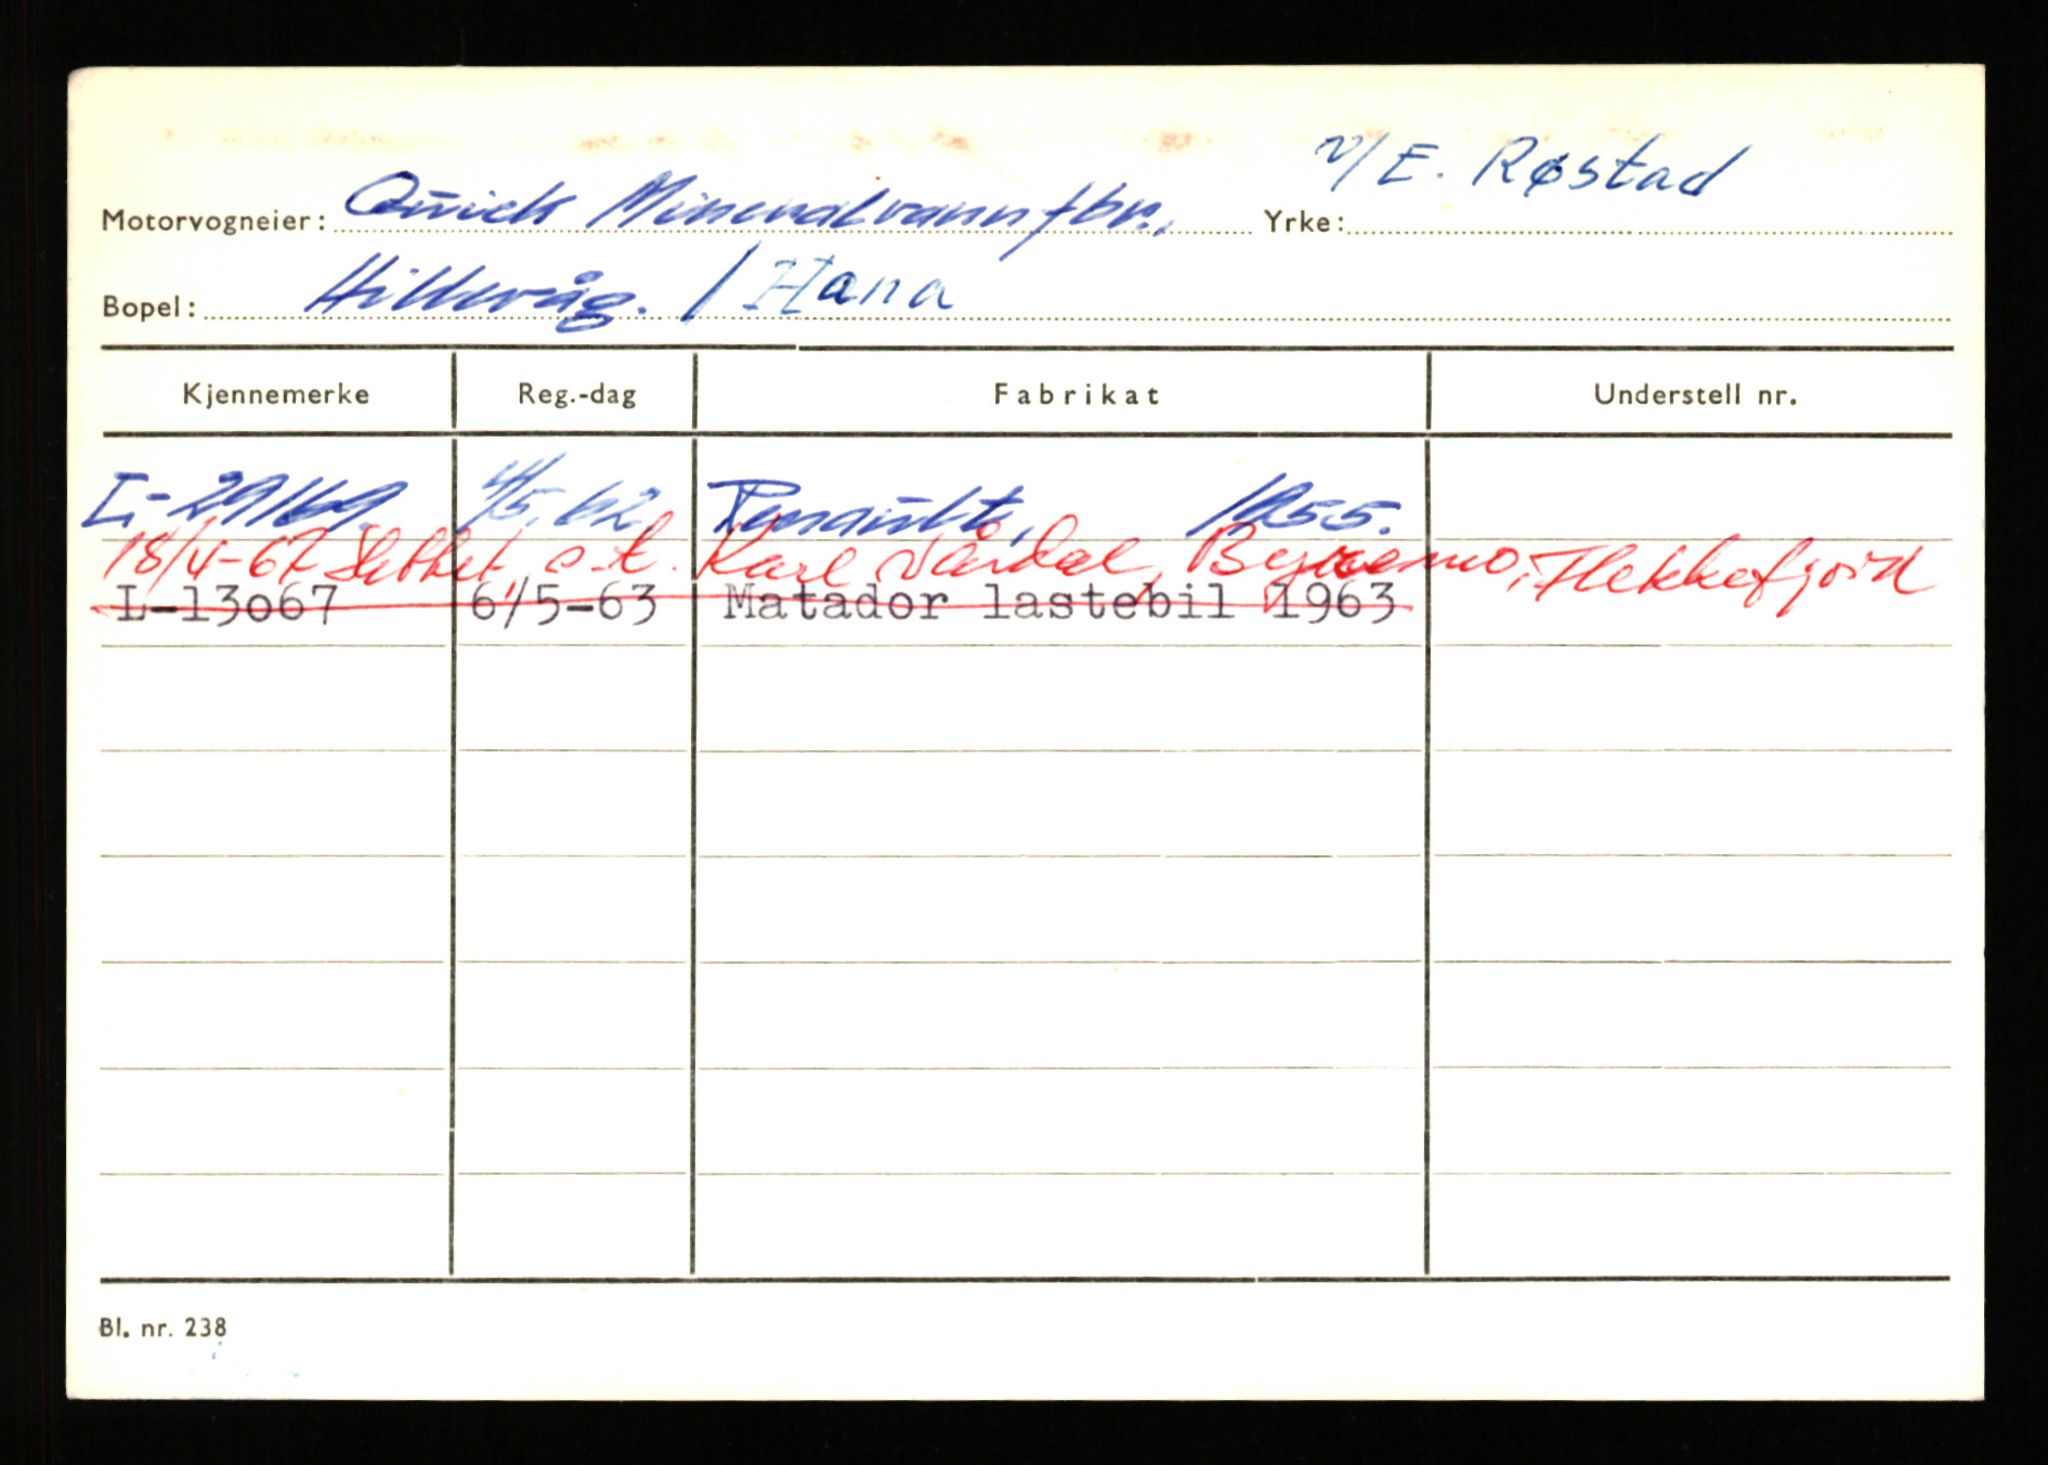 v/ E. Røstad
Motorvogneier: Quick Mineralvannfbr., Yrke:
Bopel: Hillevåg. / Hana
Kjennemerke Reg.-dag Fabrikat Understell nr.
L-29169. 4/5.62. Renault, 1955.
18/4-67 Slettet, s.t. Karl Vårdal, Byremo, Flekkefjord
L-13067 6/5-63 Matador lastebil 1963
Bl. nr. 238